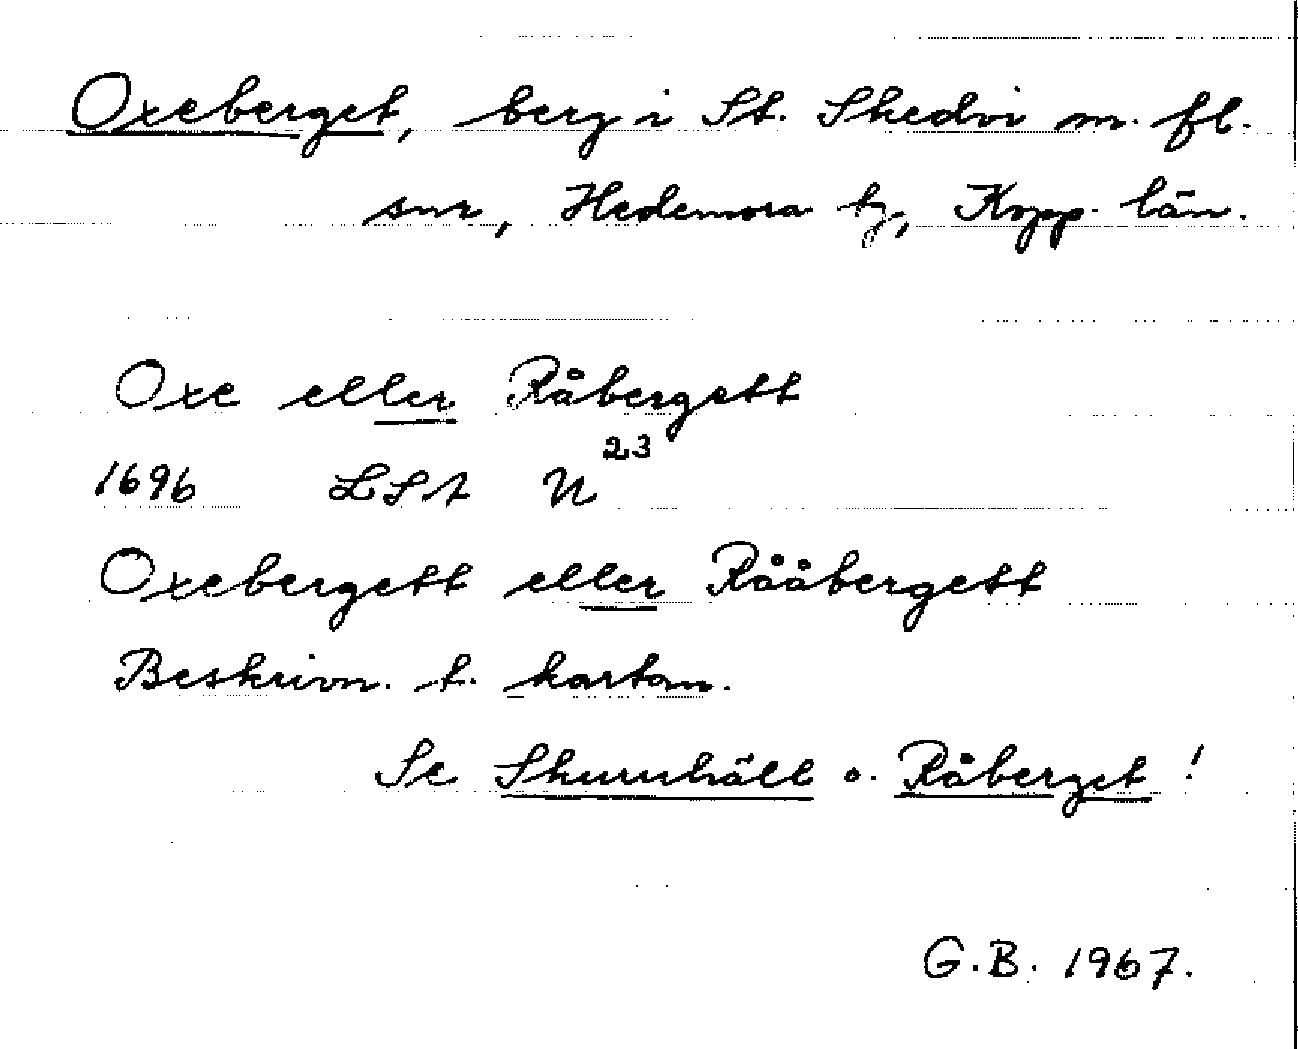 Oxeberget, berg i St. Skedvi m. fl.
snr, Hedemora tg, Kopp. län.
Oxe eller Råbergett
1696 LSA U 23
Oxebergett eller Rååbergett
Beskrivn. t. kartan.
Se Skuruhäll o. Råberget!
G.B. 1967.